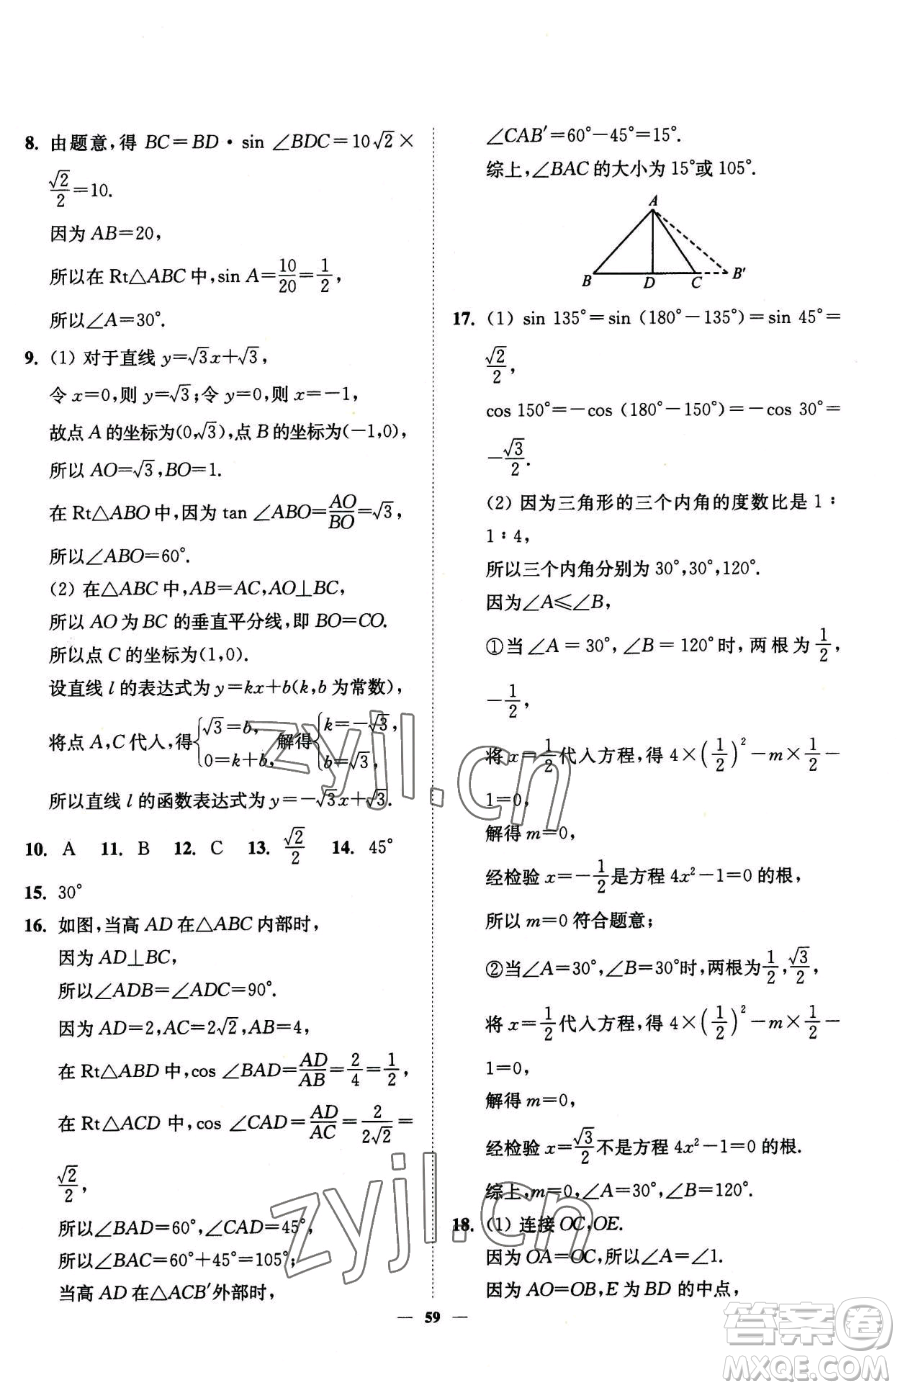 8. 由题意,得 BC=BD·sin ∠BDC=10√2×
√2/2=10.
因为 AB=20,
所以在 Rt△ABC 中,sin A=10/20=1/2,
所以∠A=30°.
9. (1) 对于直线 y=√3x+√3,
令 x=0,则 y=√3;令 y=0,则 x=-1,
故点 A 的坐标为(0,√3),点 B 的坐标为(-1,0),
所以 AO=√3,BO=1.
在 Rt△ABO 中,因为 tan ∠ABO=AO/BO=√3,
所以∠ABO=60°.
(2) 在△ABC 中,AB=AC,AO⊥BC,
所以 AO 为 BC 的垂直平分线,即 BO=CO.
所以点 C 的坐标为(1,0).
设直线 l 的表达式为 y=kx+b(k,b 为常数),
将点 A,C 代入,得{√3=b, 0=k+b, 解得{k=-√3, b=√3,
所以直线 l 的函数表达式为 y=-√3x+√3.
10. A 11. B 12. C 13. √2/2 14. 45°
15. 30°
16. 如图,当高 AD 在△ABC 内部时,
因为 AD⊥BC,
所以∠ADB=∠ADC=90°.
因为 AD=2,AC=2√2,AB=4,
在 Rt△ABD 中,cos ∠BAD=AD/AB=2/4=1/2,
在 Rt△ACD 中,cos ∠CAD=AD/AC=2/2√2=
√2/2,
所以∠BAD=60°,∠CAD=45°,
所以∠BAC=60°+45°=105°;
当高 AD 在△ACB′外部时,
∠CAB′=60°-45°=15°.
综上,∠BAC 的大小为 15°或 105°.
A
B D C B′
17. (1) sin 135°=sin (180°-135°)=sin 45°=
√2/2,
cos 150°=-cos (180°-150°)=-cos 30°=
-√3/2.
(2) 因为三角形的三个内角的度数比是 1∶
1∶4,
所以三个内角分别为 30°,30°,120°.
因为∠A≤∠B,
①当 ∠A=30°,∠B=120°时,两根为1/2,
-1/2,
将 x=1/2代入方程,得 4×(1/2)²-m×1/2-
1=0,
解得 m=0,
经检验 x=-1/2是方程 4x²-1=0 的根,
所以 m=0 符合题意;
②当∠A=30°,∠B=30°时,两根为1/2,√3/2,
将 x=1/2代入方程,得 4×(1/2)²-m×1/2-
1=0,
解得 m=0,
经检验 x=√3/2不是方程 4x²-1=0 的根.
综上,m=0,∠A=30°,∠B=120°.
18. (1) 连接 OC,OE.
因为 OA=OC,所以∠A=∠1.
因为 AO=OB,E 为 BD 的中点,
— 59 —
zyjl.cn
zyjl.cn
答案圈
MXQE.COM